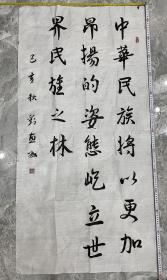 中華民族將以更加
昂揚的姿態屹立世
界民族之林
己亥秋